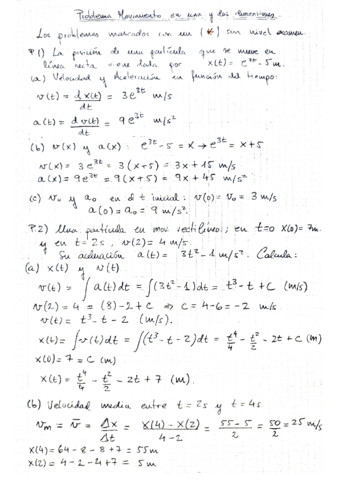 Problemas Movimiento en una y dos dimensiones
Los problemas marcados con un (*) son nivel examen.
P.1) La posición de una partícula que se mueve en
línea recta viene dada por x(t) = e^3t - 5 m.
(a) Velocidad y aceleración en función del tiempo:
v(t) = dx(t)/dt = 3e^3t m/s
a(t) = dv(t)/dt = 9e^3t m/s²
(b) v(x) y a(x): e^3t - 5 = x → e^3t = x+5
v(x) = 3e^3t = 3(x+5) = 3x + 15 m/s
a(x) = 9e^3t = 9(x+5) = 9x + 45 m/s²
(c) v₀ y a₀ en el t inicial: v(0) = v₀ = 3 m/s
a(0) = a₀ = 9 m/s².
P.2) Una partícula en mov. rectilíneo; en t=0 x(0) = 7m.
y en t = 2s, v(2) = 4 m/s.
Su aceleración a(t) = 3t² - 1 m/s². Calcula:
(a) x(t) y v(t)
v(t) = ∫a(t)dt = ∫(3t²-1)dt = t³ - t + C (m/s)
v(2) = 4 = (8) - 2 + C ⇒ C = 4 - 6 = -2 m/s
v(t) = t³ - t - 2 (m/s).
x(t) = ∫v(t)dt = ∫(t³ - t - 2)dt = t⁴/4 - t²/2 - 2t + C (m)
x(0) = 7 = C (m)
x(t) = t⁴/4 - t²/2 - 2t + 7 (m).
(b) Velocidad media entre t = 2s y t = 4s
vₘ = v̄ = Δx/Δt = x(4) - x(2)/4-2 = 55-5/2 = 50/2 = 25 m/s
x(4) = 64 - 8 - 8 + 7 = 55m
x(2) = 4 - 2 - 4 + 7 = 5 m